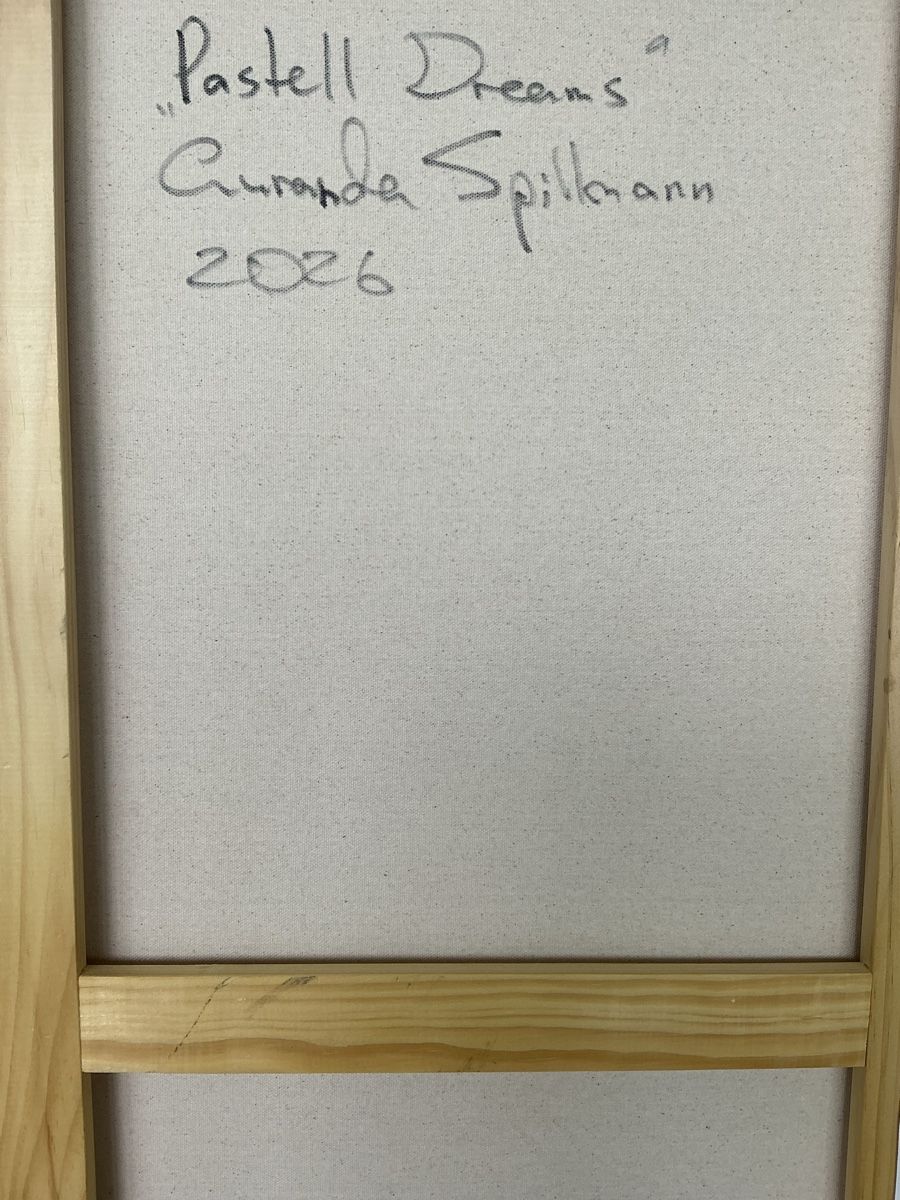 „Pastell Dreams“
Amanda Spillmann
2026